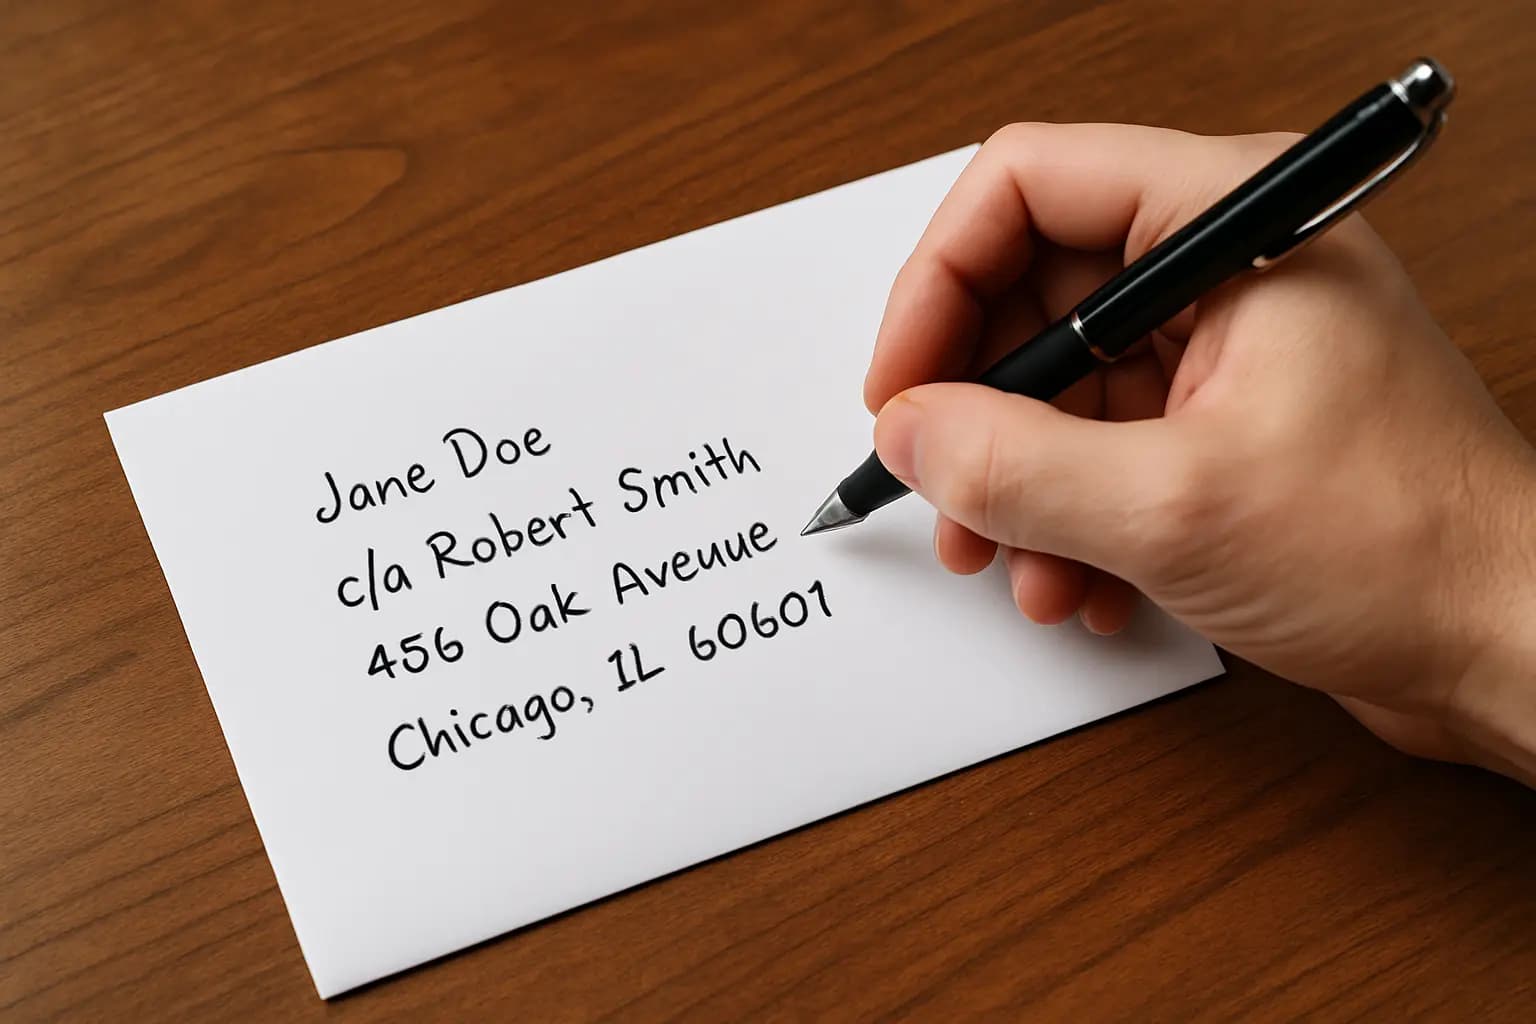 Jane Doe
c/a Robert Smith
456 Oak Aveuue
Chicago, IL 60601